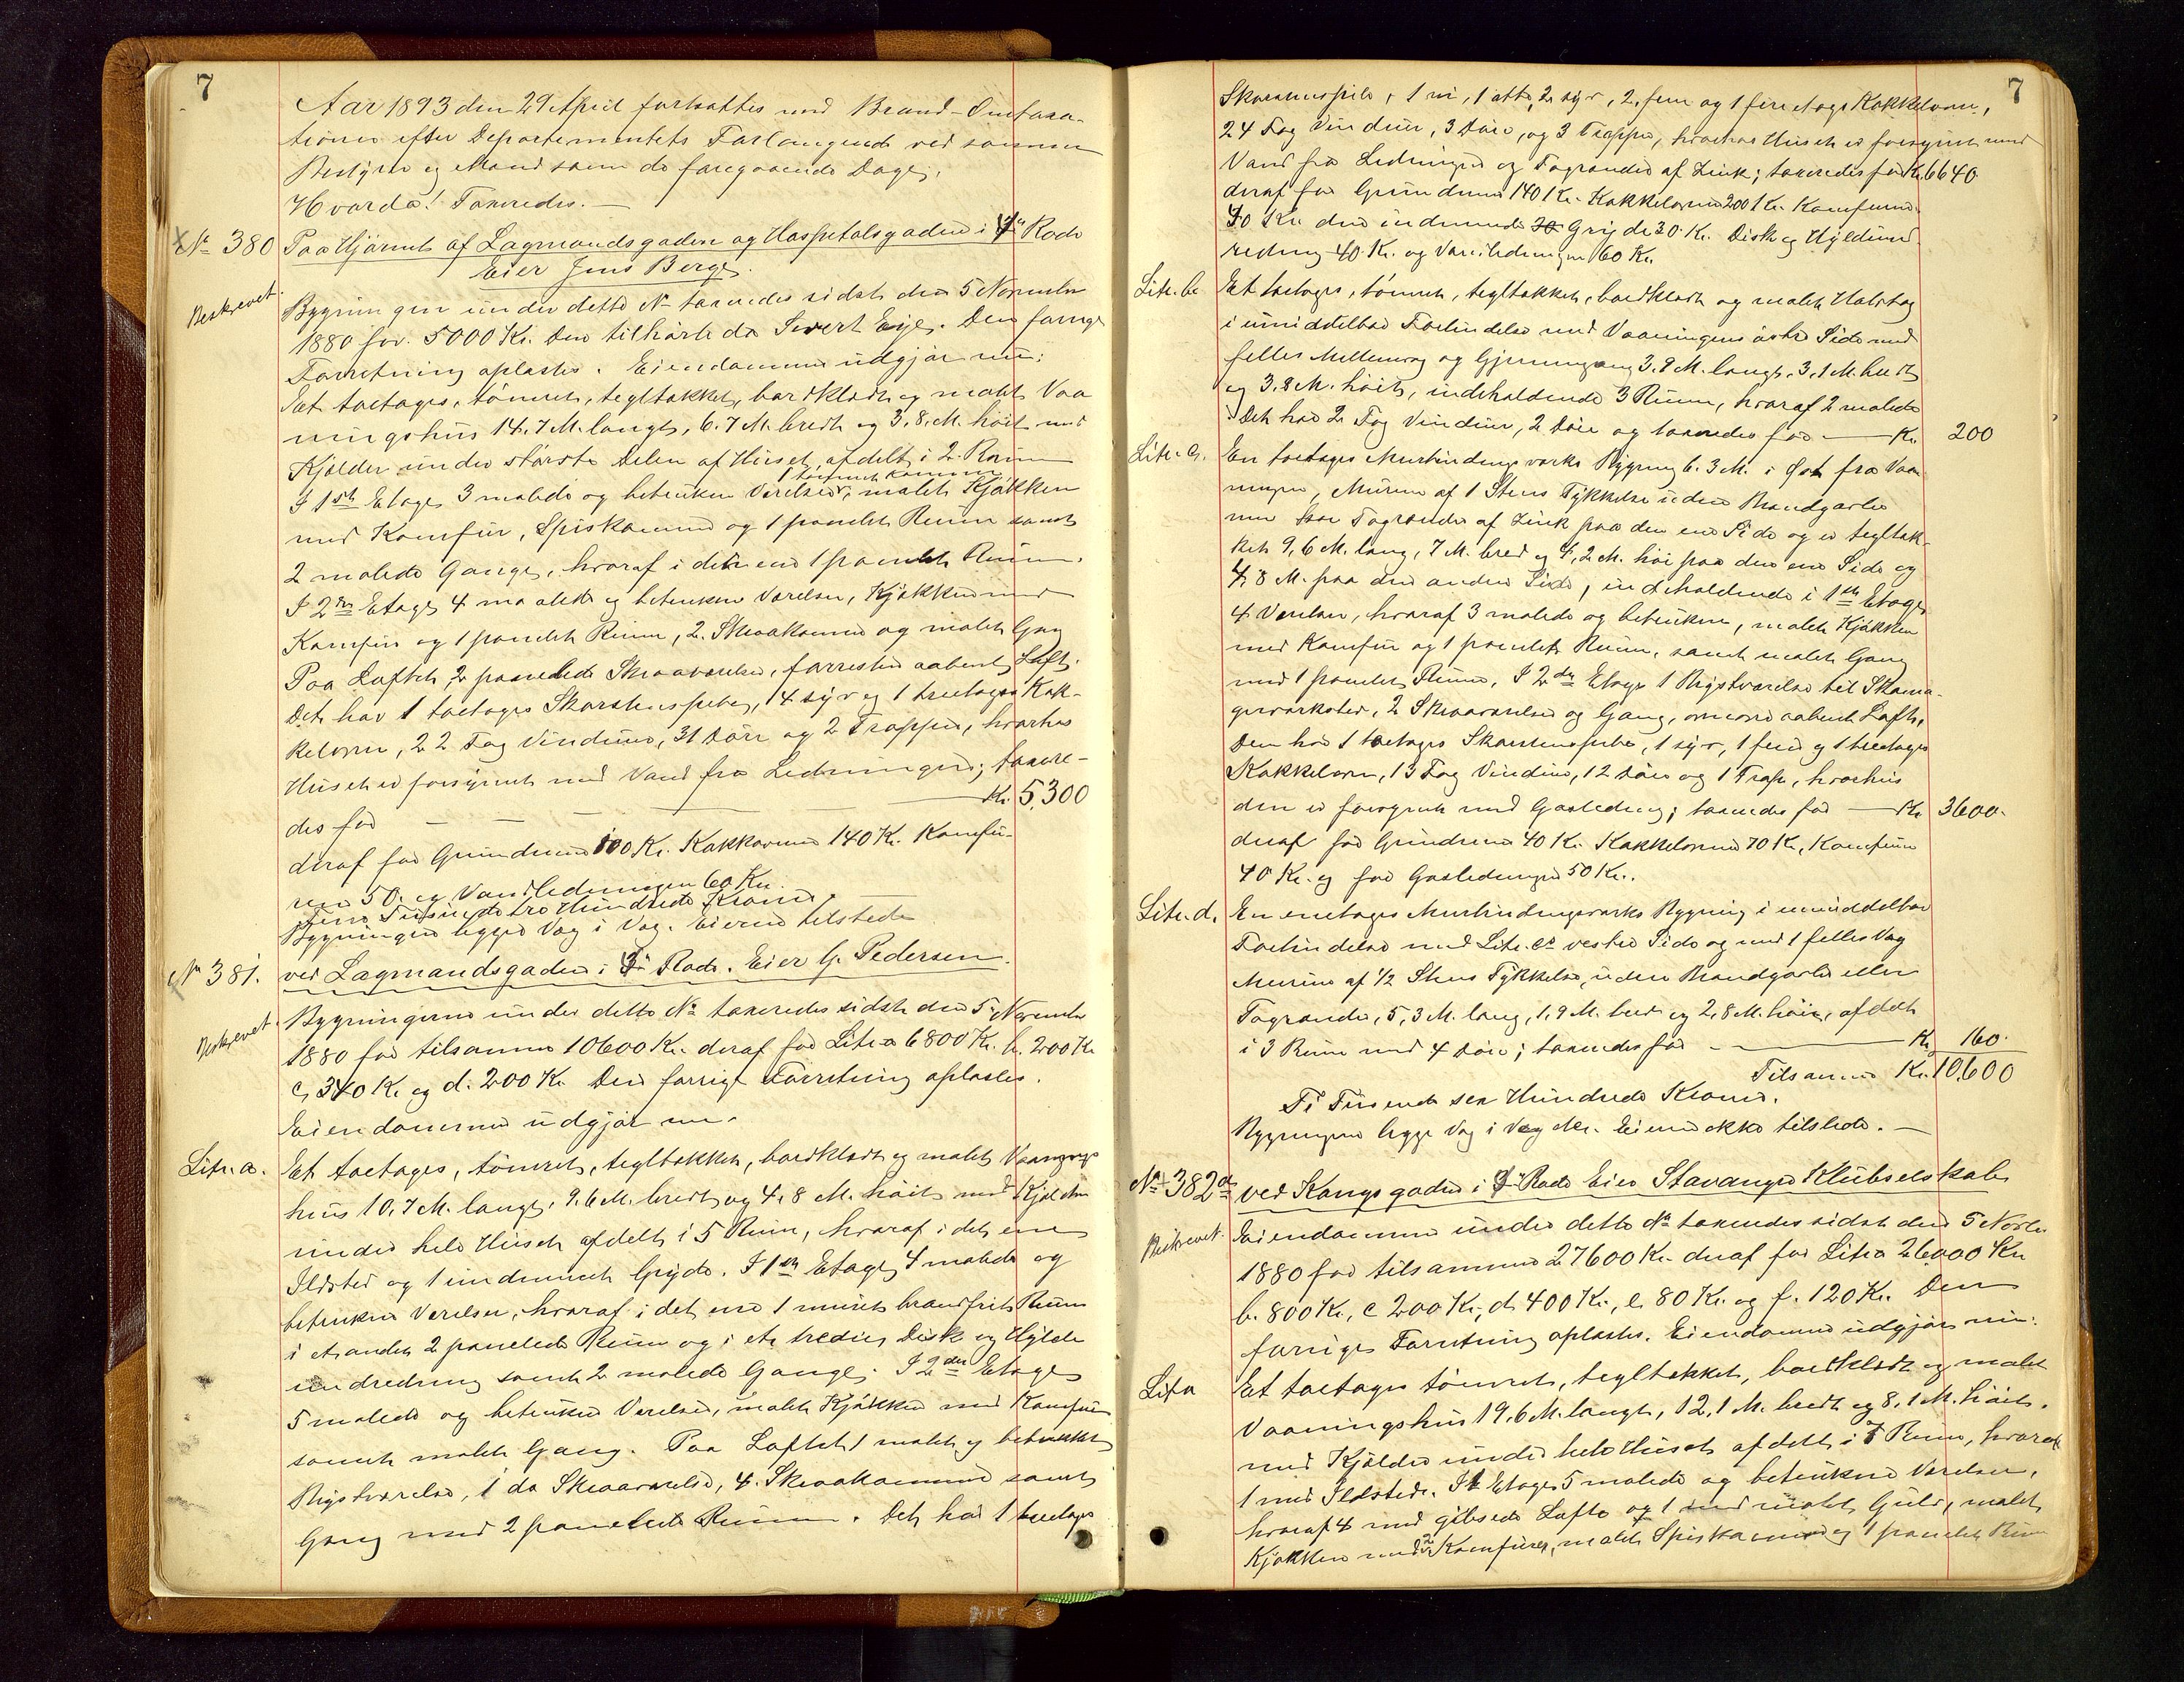 7
Aar 1893 den 29 April fortsattes med Brand-Omtaxa-
tionen efter Departementets Forlangende ved samme
Bestyrer og Mænd som de foregaaende Dage.
Hvorda! Taxeredes. —
No 380 Paa Hjørnet af Lagmandsgaden og Hospitalsgaden i 4de Rode
Eier Jens Berge.
Beskrevet.
Bygningen under dette No taxeredes sidst den 5 November
1880 for 5000 Kr. Den tilhørte da Sivert Eije. Den forrige
Forretning oplæstes. Eiendommen udgjør nu:
Et toetages, tømret, tegltækket, bordklædt og malet Vaa
ningshus 14.7 M. langt, 6.7 M. bredt og 3.8 M. høit med
Kjælder under største Delen af Huset, afdelt i 2 Rum
I 1ste Etage 3 malede og betrukne Værelser, malet Kjøkken
med Komfur, Spiskammer og 1 panelet Rum samt
2 malede Gange, hvoraf i den ene 1 panelet Rum.
I 2den Etage 4 malede og betrukne Værelser, Kjøkken med
Komfur og 1 panelet Rum, 2 Skraakammer og malet Gang
Paa Loftet 2 panelede Skraaværelser, forresten aabent Loft.
Det har 1 toetages Skorstenspibe, 14 syv og 1 treetages Kak-
kelovn, 22 Fag Vinduer, 31 Døre og 2 Trapper, hvorhos
Huset er forsynet med Vand fra Ledningen; taxere-
des for — — — Kr. 5,300
deraf for Grundmur 100 Kr. Kakkovnene 140 Kr. Komfu-
rene 50. og Vandledningen 60 Kr.
Fem Tusinde tre Hundrede Kroner.
Bygningen ligger Væg i Væg. Eieren tilstede
No 381. ved Lagmandsgaden i 4de Rode. Eier G. Pedersen.
Beskrevet.
Bygningerne under dette No taxeredes sidst den 5 November
1880 for tilsammen 10600 Kr. deraf for Litr a 6800 Kr. b. 200 Kr
c, 340 Kr. og d. 200 Kr. Den forrige Forretning oplæstes.
Eiendommen udgjør nu.
Litr. a. Et toetages, tømret, tegltækket, bordklædt og malet Vaanings
hus 10.7 M. langt, 9.6 M. bredt og 4.8 M. høit med Kjælder
under hele Huset afdelt i 5 Rum, hvoraf i det ene
Ildsted og 1 indmuret Gryde. I 1ste Etage 4 malede og
betrukne Værelser, hvoraf i det ene 1 muret brandfrit Rum
i et andet 2 panelede Rum og i et tredie, Disk og Hylde
indredning samt 2 malede Gange. I 2den Etage
5 malede og betrukne Værelser, malet Kjøkken med Komfur
samt malet Gang. Paa Loftet 1 malet og betrukket
Kvistværelse, 1 do Skraaværelse, 4 Skraakammer samt
Gang med 2 panelede Rum. Det har 1 treetages
7
Skorstenspibe, 1 ni, 1 otte, 2 syv, 2 fem og 1 fire etages Kakkelovne,
24 Fag Vinduer, 3 Døre, og 3 Trapper, hvorhos Huset er forsynet med
Vand fra Ledningen og Tagrender af Zink; taxeredes for Kr. 6640
deraf for Grundmur 140 Kr. Kakkelovne 200 Kr. Komfurene
70 Kr. den indmurede Gryde 30 Kr. Disk og Hyldeind
redning 40 Kr. og Vandledningen 60 Kr.
Litr. b. Et toetages, tømret, tegltækket, bordklædt og malet Halvtag
i umiddelbar Forbindelse med Vaaningens østre Side med
felles Mellemvæg og Gjennemgang 3.8 M. langt, 3.1 M. bredt
og 3.8 M. høit, indeholdende 3 Rum, hvoraf 2 malede
Det har 2 Fag Vinduer, 2 Døre og taxeredes for — Kr. 200
Litr. c. En toetages Murbindingsværks Bygning 6.3 M. i Øst fra Vaa
ningen, Murene af 1 Stens Tykkelse uden Brandgavle
men har Tagrender af Zink paa den ene Side og er tegltæk-
ket 9,6 M. lang, 7 M. bred og 4,2 M. høi paa den ene Side og
4,8 M. paa den anden Side, indeholdende i 1ste Etage
4 Værelser, hvoraf 3 malede og betrukne, malet Kjøkken
med Komfur og 1 panelet Rum, samt malet Gang
med 1 panelet Rum, I 2den Etage 1 Kvistværelse til Skoma-
gerværksted, 2 Skraaværelser og Gang, ovenover aabent Loft.
Den har 1 toetages Skorstenspibe, 1 syv, 1 fem og 1 treetages
Kakkelovn, 13 Fag Vinduer, 12 Døre og 1 Trap, hvorhos
den er forsynet med Gasledning; taxeredes for — Kr 3600.
deraf for Grundmur 40 Kr. Kakkelovnene 70 Kr, Komfuren
40 Kr. og for Gasledningen 50 Kr.
Litr. d. En enetages Murbindingsværks Bygning i umiddelbar
Forbindelse med Litr. cs vestre Side og med 1 felles Væg
Murene af 1/2 Stens Tykkelse, uden Brandgavle eller
Tagrender, 5,3 M. lang, 1,9 M. bred og 2,8 M. høi, afdelt
i 3 Rum med 4 Døre; taxeredes for — Kr 160.
Tilsammen Kr. 10,600
Ti Tusende sex Hundrede Kroner.
Bygningerne ligge Væg i Væg. Eieren ikke tilstede. —
No 382 ved Kongsgaden i 4de Rode Eier Stavanger Klubselskab
Beskrevet.
Eiendommen under dette No taxeredes sidst den 5 Novbr.
1880 for tilsammen 27600 Kr. deraf for Litr a 26000 Kr
b. 800 Kr., c 200 Kr., d. 400 Kr., e. 80 Kr. og f. 120 Kr. Den
forrige Forretning oplæstes. Eiendommen udgjør nu:
Lit a Et toetages tømret, tegltækket, bordklædt og malet
Vaaningshus 19.6 M. langt, 12.1 M. bredt og 8.1 M. høit.
med Kjælder under hele Huset afdelt i 7 Rum, hvoraf
1 med Ildsted. I 1 Etage 5 malede og betrukne Værelser,
hvoraf 4 med gibsede Lofte og 1 med malet Gulv, malet
Kjøkken med 2 Komfurer, malet Spiskammer og 1 panelet Rum